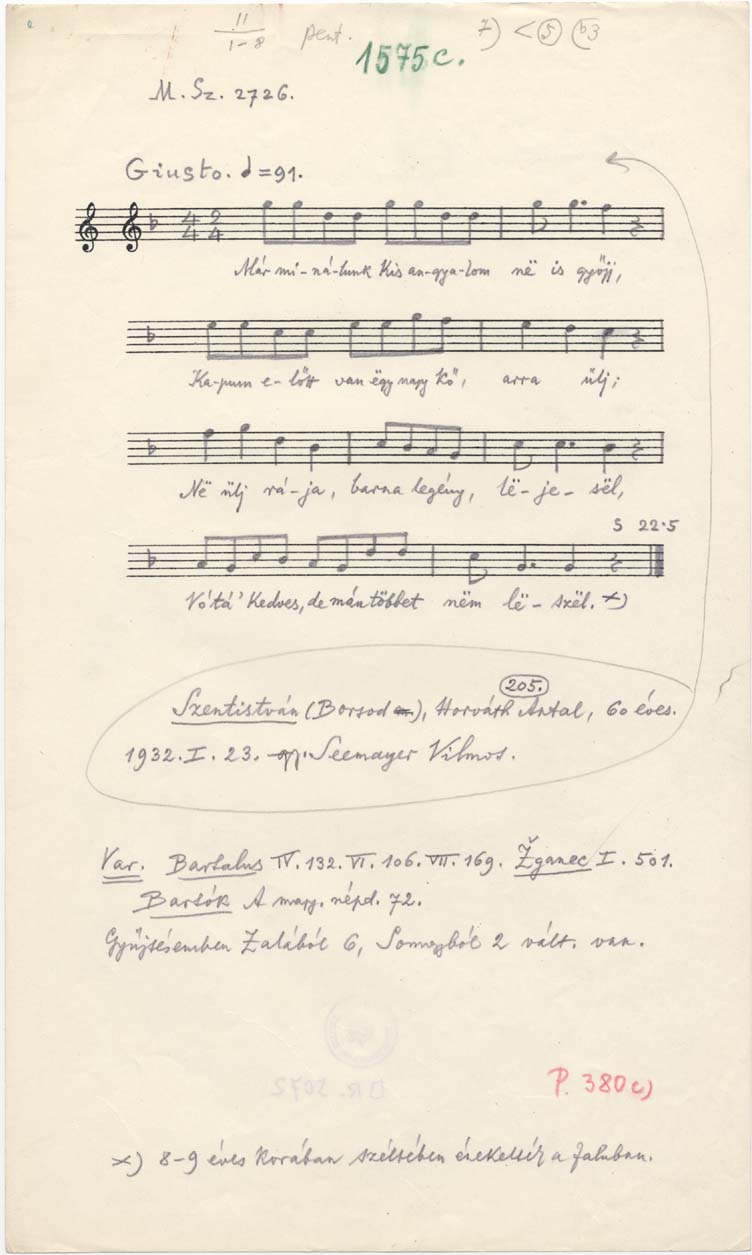 11
1-8 pent. 7) < 5 (b3
1575c.
M. Sz. 2726.
Giusto. =91.
4 2
4 4
Már mi-ná-lunk kis an-gya-lom në is győjj,
Ka-pum e-lőtt van ëgy nagy kő, arra ülj;
Në ülj rá-ja, barna legény, lë-je-sël,
S 22.5
Vótá' kedves, de mán többet nëm lë-szël. x)
205.
Szentistván (Borsod), Horváth Antal, 60 éves.
1932. I. 23. Seemayer Vilmos.
Var. Bartalus IV. 132. VI. 106. VII. 169. Žganec I. 501.
Bartók A magy. népd. 72.
Gyűjtésemben Zalából 6, Somogyból 2 vált. van.
P. 380c)
x) 8-9 éves korában széltében énekelték a faluban.